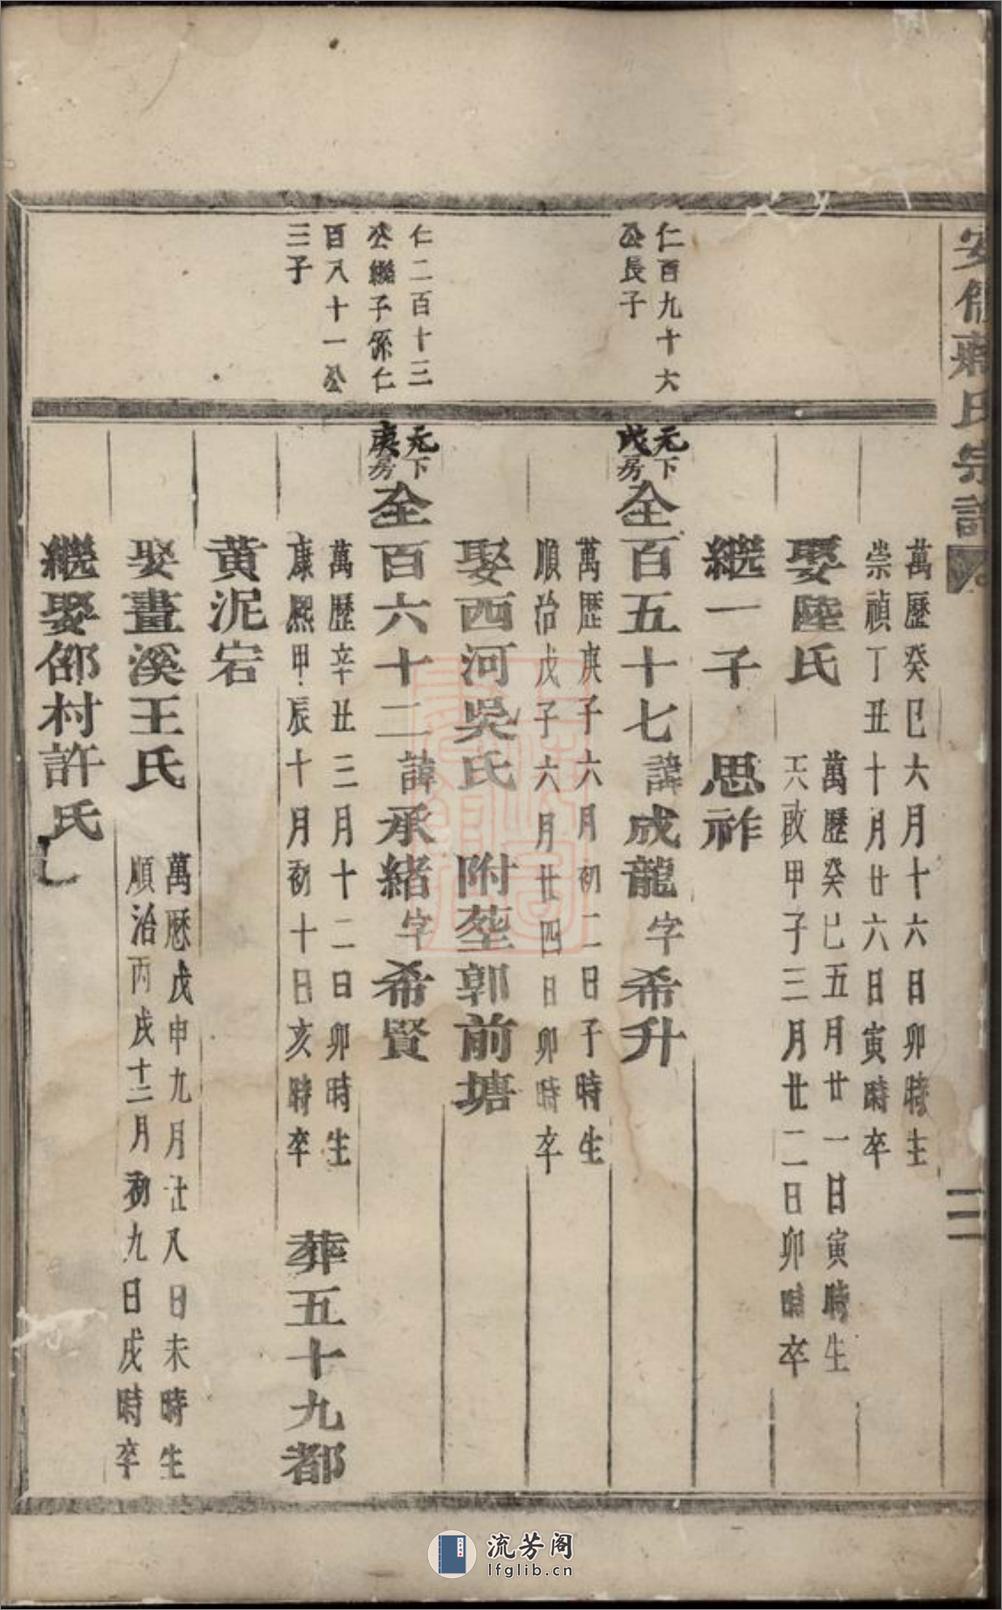 氏宗譜
二
萬歷癸巳六月十六日卯時生
崇禎丁丑十月廿六日寅時卒
娶陸氏
萬歷癸巳五月廿一日寅時生
天啟甲子三月廿二日卯時卒
繼一子 思祚
仁百九十六
公長子
元下
戊房
全百五十七諱成龍字希升
萬歷庚子六月初二日子時生
順治戊子六月廿四日卯時卒
娶西河吳氏 附塟郭前塘
仁二百十三
公繼子係仁
百八十一公
三子
元下
庚房
全百六十二諱承緒字希賢
萬歷辛丑三月十二日卯時生
康熙甲辰十月初十日亥時卒
葬五十九都
黃泥宕
娶畫溪王氏
萬歷戊申九月 日未時生
順治丙戌十二月初九日戌時卒
繼娶邵村許氏
流芳阁
lfglib.cn